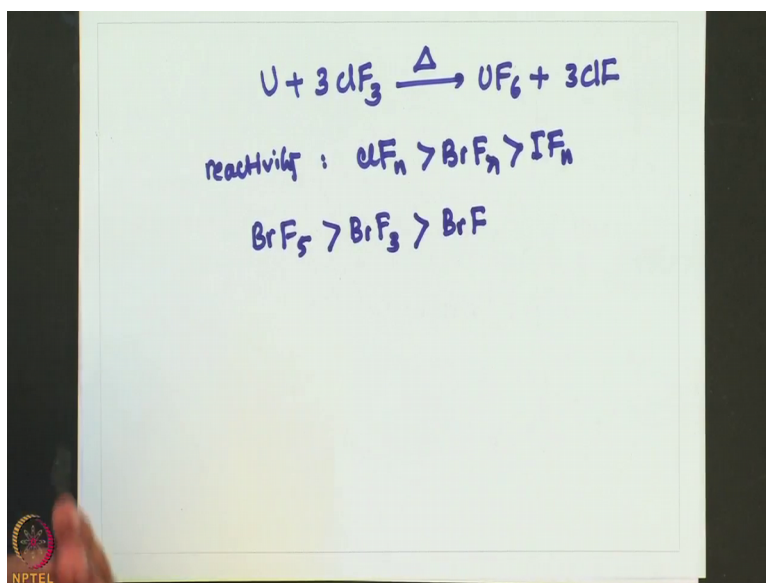 U + 3 ClF₃ —Δ→ UF₆ + 3ClF
reactivity : ClFₙ > BrFₙ > IFₙ
BrF₅ > BrF₃ > BrF
NPTEL